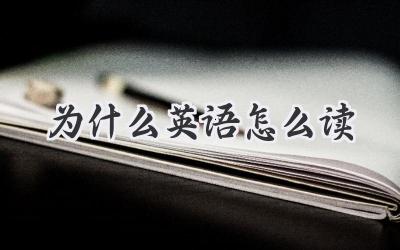 为什么英语怎么读